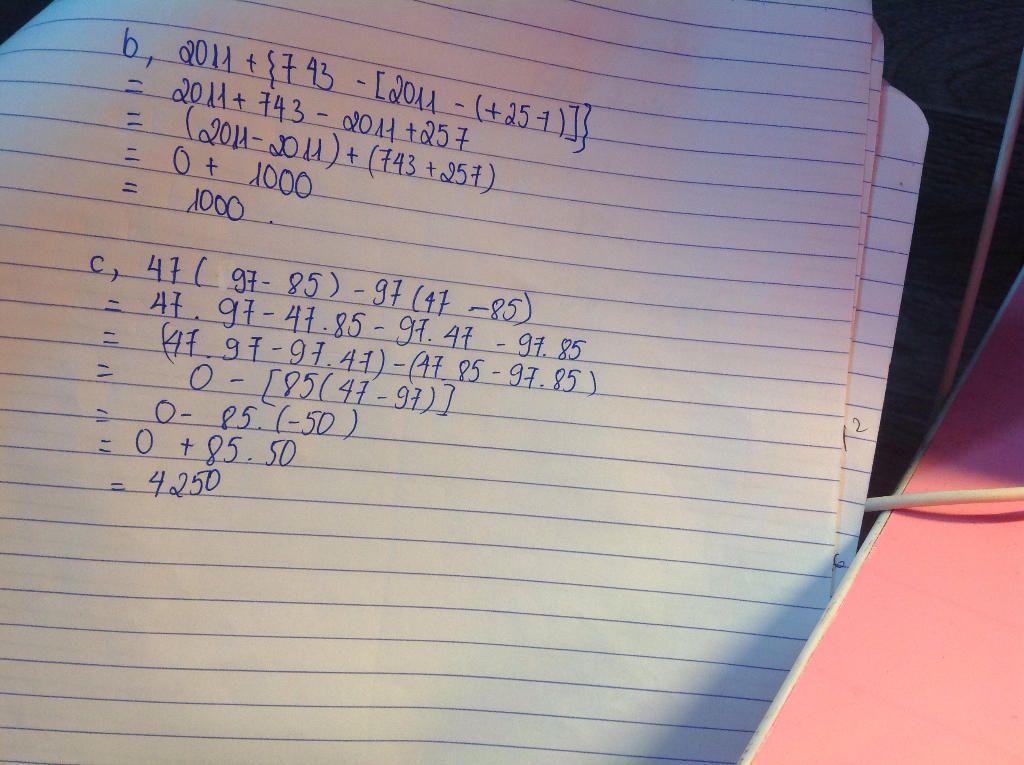 b, 2011 + {743 - [2011 - (+257)]}
= 2011 + 743 - 2011 + 257
= (2011 - 2011) + (743 + 257)
= 0 + 1000
= 1000.
c, 47 ( 97 - 85) - 97 (47 - 85)
= 47. 97 - 47.85 - 97.47 - 97.85
= (47.97 - 97.47) - (47.85 - 97.85)
= 0 - [85(47 - 97)]
= 0 - 85.(-50)
= 0 + 85.50
= 4250